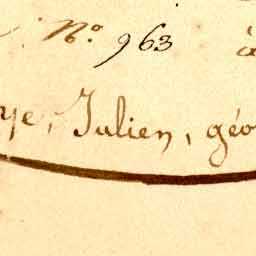 N.° 963 à
ye, Julien, géo